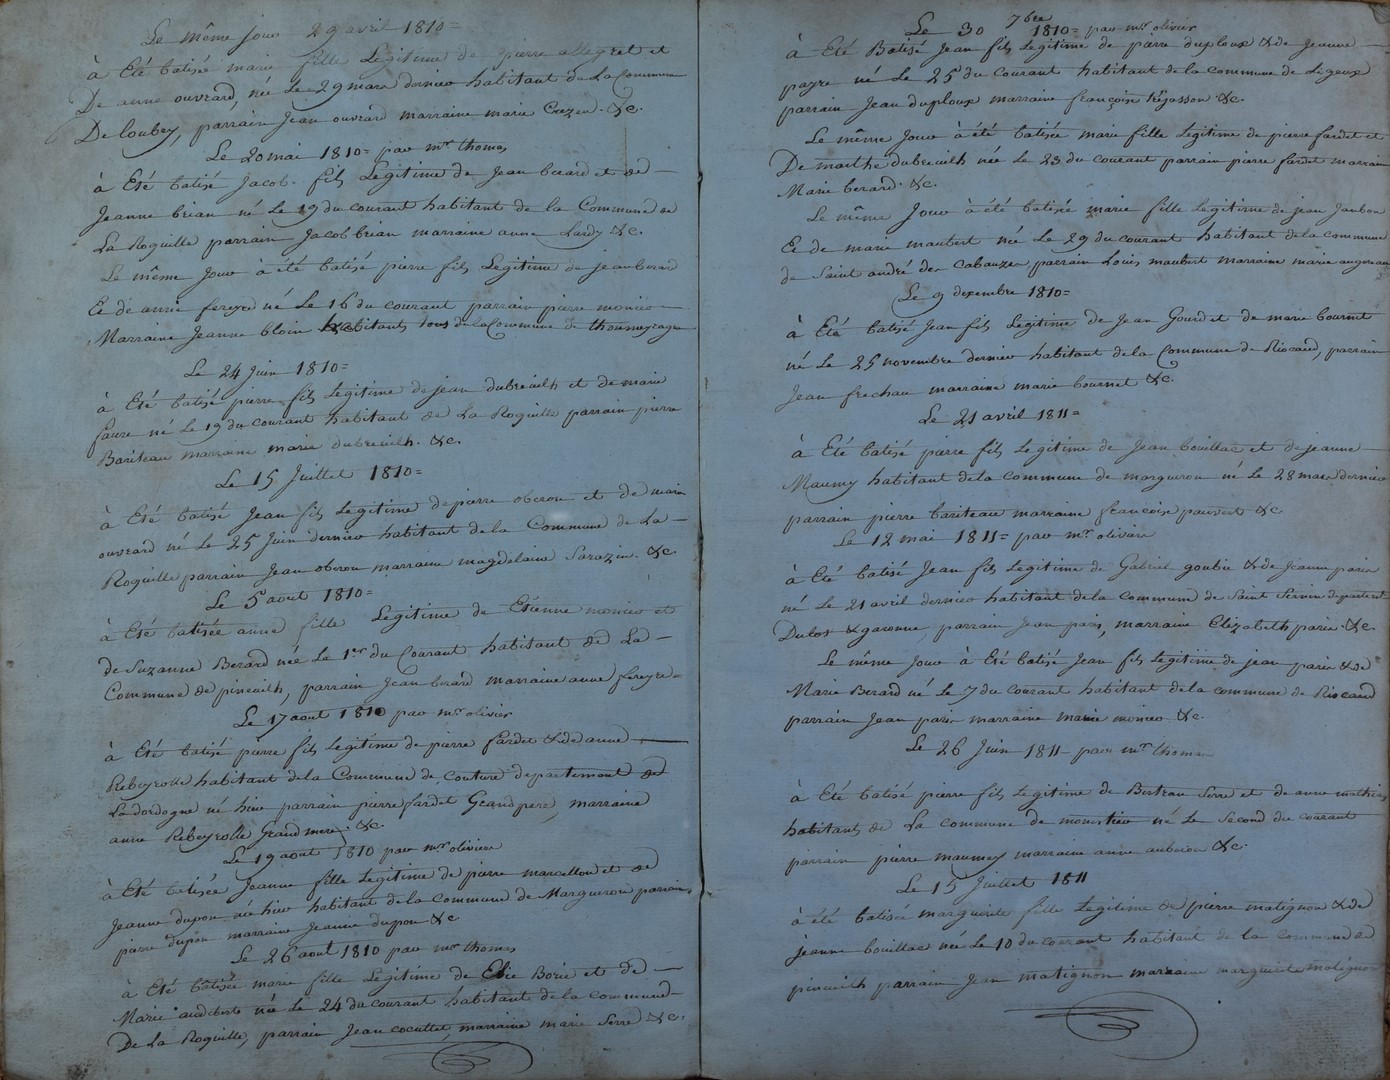 Le même jour 29 avril 1810=
à Eté batisée marie fille Legitime de pierre allegret et
De anne ouvrard, née Le 29 mars dernier habitant de La Commune
De loubez, parrain Jean ouvrard marraine marie Crezen. &c.
Le 20 mai 1810= par mr. thomas
à Eté batisé Jacob. fils Legitime de Jean berard et de —
Jeanne brian né Le 19 du courant habitant de la Commune de
La Roquille parrain Jacob brian marraine anne Lardy &c.
Le même Jour à été batisé pierre fils Legitime de jean berard
Et de anne fereyre né Le 16 du courant parrain pierre monier —
Marraine Jeanne bloin habitants tous de la Commune de thoumeyragues
Le 24 Juin 1810=
à Eté batisé pierre fils Legitime de jean dubreuilh et de marie
faure né Le 19 du courant habitant de La Roquille parrain pierre
Bariteau marraine marie dubreuilh. &c.
Le 15 Juillet 1810=
à Eté batisé Jean fils Legitime de pierre oberon et de marie
ouvrard né Le 25 Juin dernier habitant de la Commune de La —
Roquille parrain Jean oberon marraine magdelaine Sarazin. &c.
Le 5 aout 1810=
à Eté batisée anne fille Legitime de Etienne monier et
de Suzanne Berard née Le 1er du Courant habitant de La —
Commune de pineuilh, parrain Jean berard marraine anne fereyre —
Le 17 aout 1810 par mr. olivier
à Eté batisé pierre fils Legitime de pierre fardet & de anne —
Rebeyrolle habitant de la Commune de couture departement de
La dordogne né hier parrain pierre fardet Grand pere, marraine
anne Rebeyrolle Grand mere. &c.
Le 19 aout 1810 par mr. olivier
à Eté batisée Jeanne fille Legitime de pierre marcellou et de
Jeanne dupon née hier habitant de la Commune de Margueron parrain
pierre dupon marraine Jeanne dupon &c
Le 26 aout 1810 par mr. thomas
à Eté batisée marie fille Legitime de Elie Borie et de —
Marie audiberte née Le 24 du courant habitant de la commune —
De La Roquille, parrain Jean cocuttet, marraine marie Serre &c.
Le 30 7bre 1810= par mr. olivier
à Eté Batisé Jean fils Legitime de pierre duploux & de Jeanne —
payre né Le 25 du Courant habitant de la commune de Ligeux
parrain Jean duploux marraine françoise &c.
Le même Jour à été batisée marie fille Legitime de pierre fardet et
De marthe dubreuilh née Le 23 du courant parrain pierre fardet marraine
Marie berard. &c.
Le même Jour à été batisée marie fille Legitime de jean Jaubon
Et de marie maubert née Le 29 du courant habitant de la commune
de Saint andré de Cabauze parrain Louis maubert marraine marie
Le 9 decembre 1810=
à Eté batisé Jean fils Legitime de Jean Gourd et de marie bournet
né Le 25 novembre dernier habitant de la Commune de Riocaud, parrain
Jean frechau marraine marie bournet &c.
Le 21 avril 1811=
à Eté batisé pierre fils Legitime de Jean bouillac et de jeanne —
Maumy habitant de la commune de margueron né Le 28 mars dernier
parrain pierre bariteau marraine françoise pauvert &c
Le 12 mai 1811= par mr. olivier
à Eté batisé Jean fils Legitime de Gabriel goubie & de Jeanne paris
né Le 21 avril dernier habitant de la commune de Saint Sernin departement
Du lot & garonne, parrain Jean paris, marraine Elizabeth paris. &c.
Le même Jour à Eté batisé Jean fils Legitime de jean paris & de
Marie Berard né Le 7 du courant habitant de la commune de Riocaud
parrain Jean paris marraine marie monier &c.
Le 26 Juin 1811 par mr. thomas
à Eté batisé pierre fils Legitime de Bertrau Serre et de anne mathieu
habitants de La commune de monestier né Le Second du courant
parrain pierre maumey marraine anne auberon &c.
Le 15 Juillet 1811
à été batisée marguerite fille Legitime de pierre matignon & de
jeanne bouillac née Le 10 du courant habitant de la commune de
pineuilh parrain Jean matignon marraine marguerite matignon